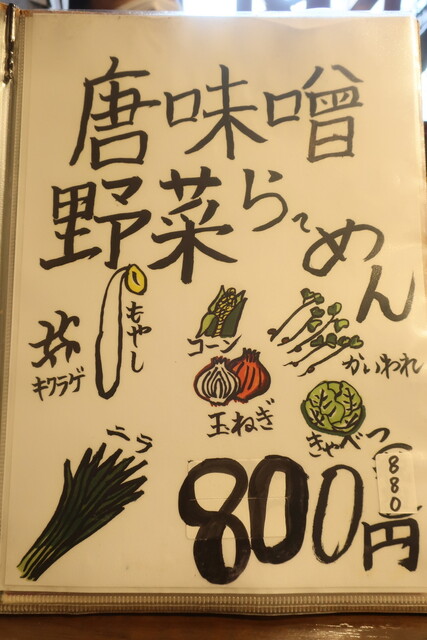 唐味噌
野菜ら〜めん
もやし
コーン
かいわれ
キクラゲ
玉ねぎ
きゃべつ
ニラ
800円
880